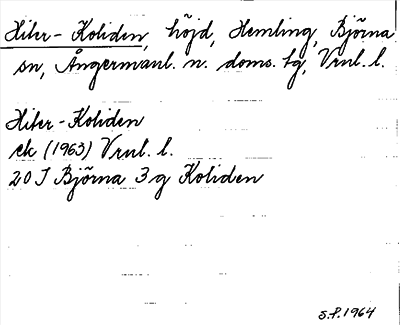 Hiter-Koliden, höjd, Hemling, Björna
sn, Ångermanl. n. doms. tg, Vrnl. l.
Hiter-Koliden
ek (1963) Vrnl. l.
20 J Björna 3 g Koliden
S.F. 1964